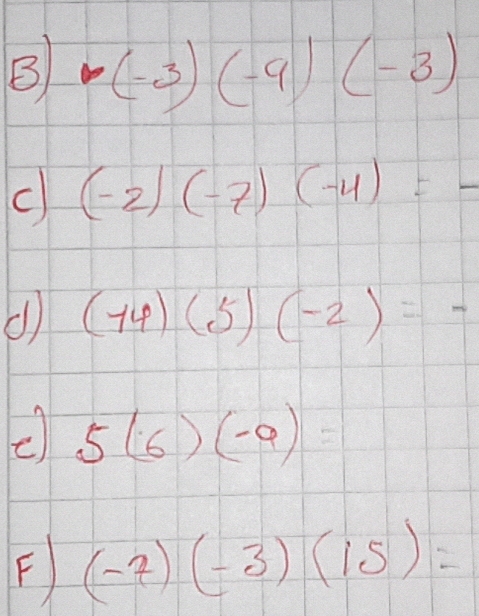 B) (-3) (-9) (-3)
c) (-2) (-7) (-4) = -
d) (-14) (5) (-2) = -
e) 5 (6) (-9) =
F) (-2) (-3) (15) =